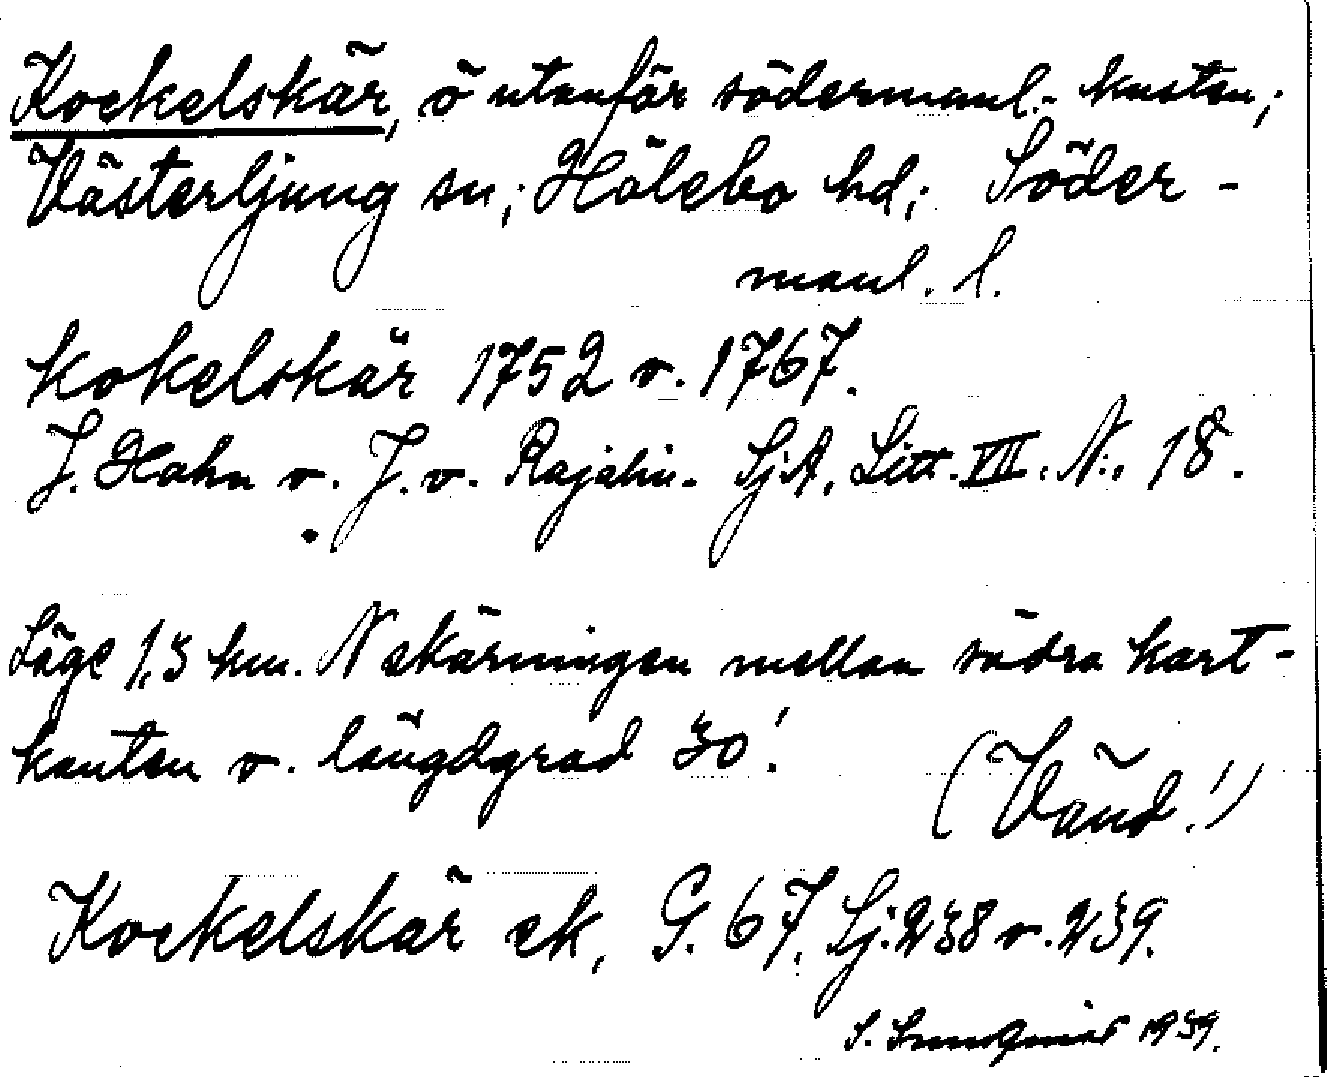 Kockelskär, ö utanför södermanl. kusten;
Västerljung sn; Hölebo hd; Söder-
manl. l.
Kokelskär 1752 o. 1767.
J. Hahn o. J. v. Rajalin. SjA, Litt. VII. N:. 18.
Läge 1,5 km. N skärningen mellan södra kart-
kanten o. längdgrad 30'.
(Vänd!)
Kockelskär ek, G. 67, Sj. 238 o. 239.
S. 1939.